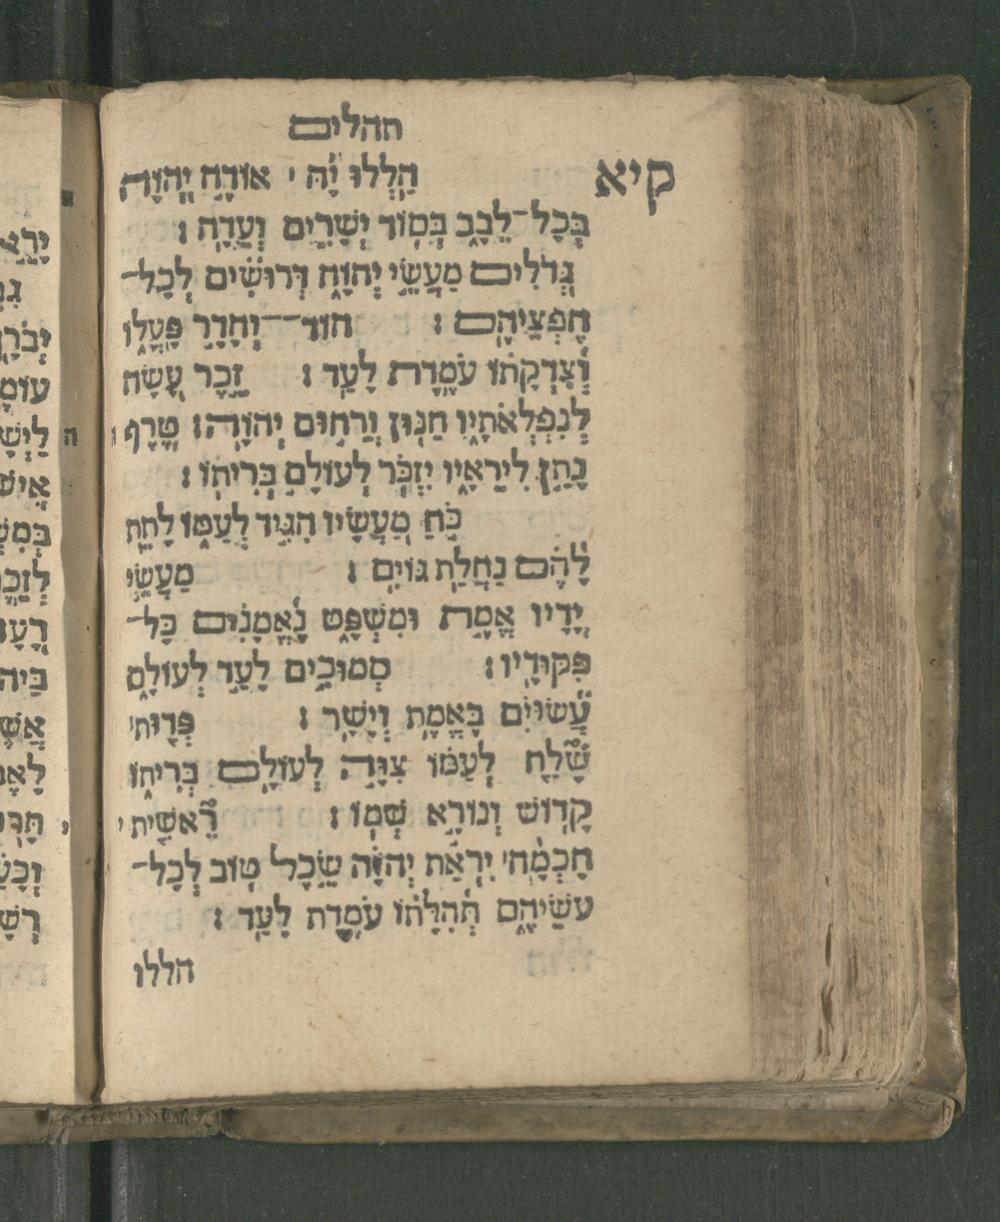 תהלים
קיא הַלְלוּ יָהּ ׀ אוֹדֶה יְהוָה
בְּכָל־לֵבָב בְּסוֹד יְשָׁרִים וְעֵדָה׃
גְּדֹלִים מַעֲשֵׂי יְהוָה דְּרוּשִׁים לְכָל־
חֶפְצֵיהֶם׃ הוֹד־וְהָדָר פָּעֳלוֹ
וְצִדְקָתוֹ עֹמֶדֶת לָעַד׃ זֵכֶר עָשָׂה
לְנִפְלְאֹתָיו חַנּוּן וְרַחוּם יְהוָה׃ טֶרֶף
נָתַן לִירֵאָיו יִזְכֹּר לְעוֹלָם בְּרִיתוֹ׃
כֹּחַ מַעֲשָׂיו הִגִּיד לְעַמּוֹ לָתֵת
לָהֶם נַחֲלַת גּוֹיִם׃ מַעֲשֵׂי
יָדָיו אֱמֶת וּמִשְׁפָּט נֶאֱמָנִים כָּל־
פִּקּוּדָיו׃ סְמוּכִים לָעַד לְעוֹלָם
עֲשׂוּיִם בֶּאֱמֶת וְיָשָׁר׃ פְּדוּת
שָׁלַח לְעַמּוֹ צִוָּה לְעוֹלָם בְּרִיתוֹ
קָדוֹשׁ וְנוֹרָא שְׁמוֹ׃ רֵאשִׁית
חָכְמָה יִרְאַת יְהוָה שֵׂכֶל טוֹב לְכָל־
עֹשֵׂיהֶם תְּהִלָּתוֹ עֹמֶדֶת לָעַד׃
הללו